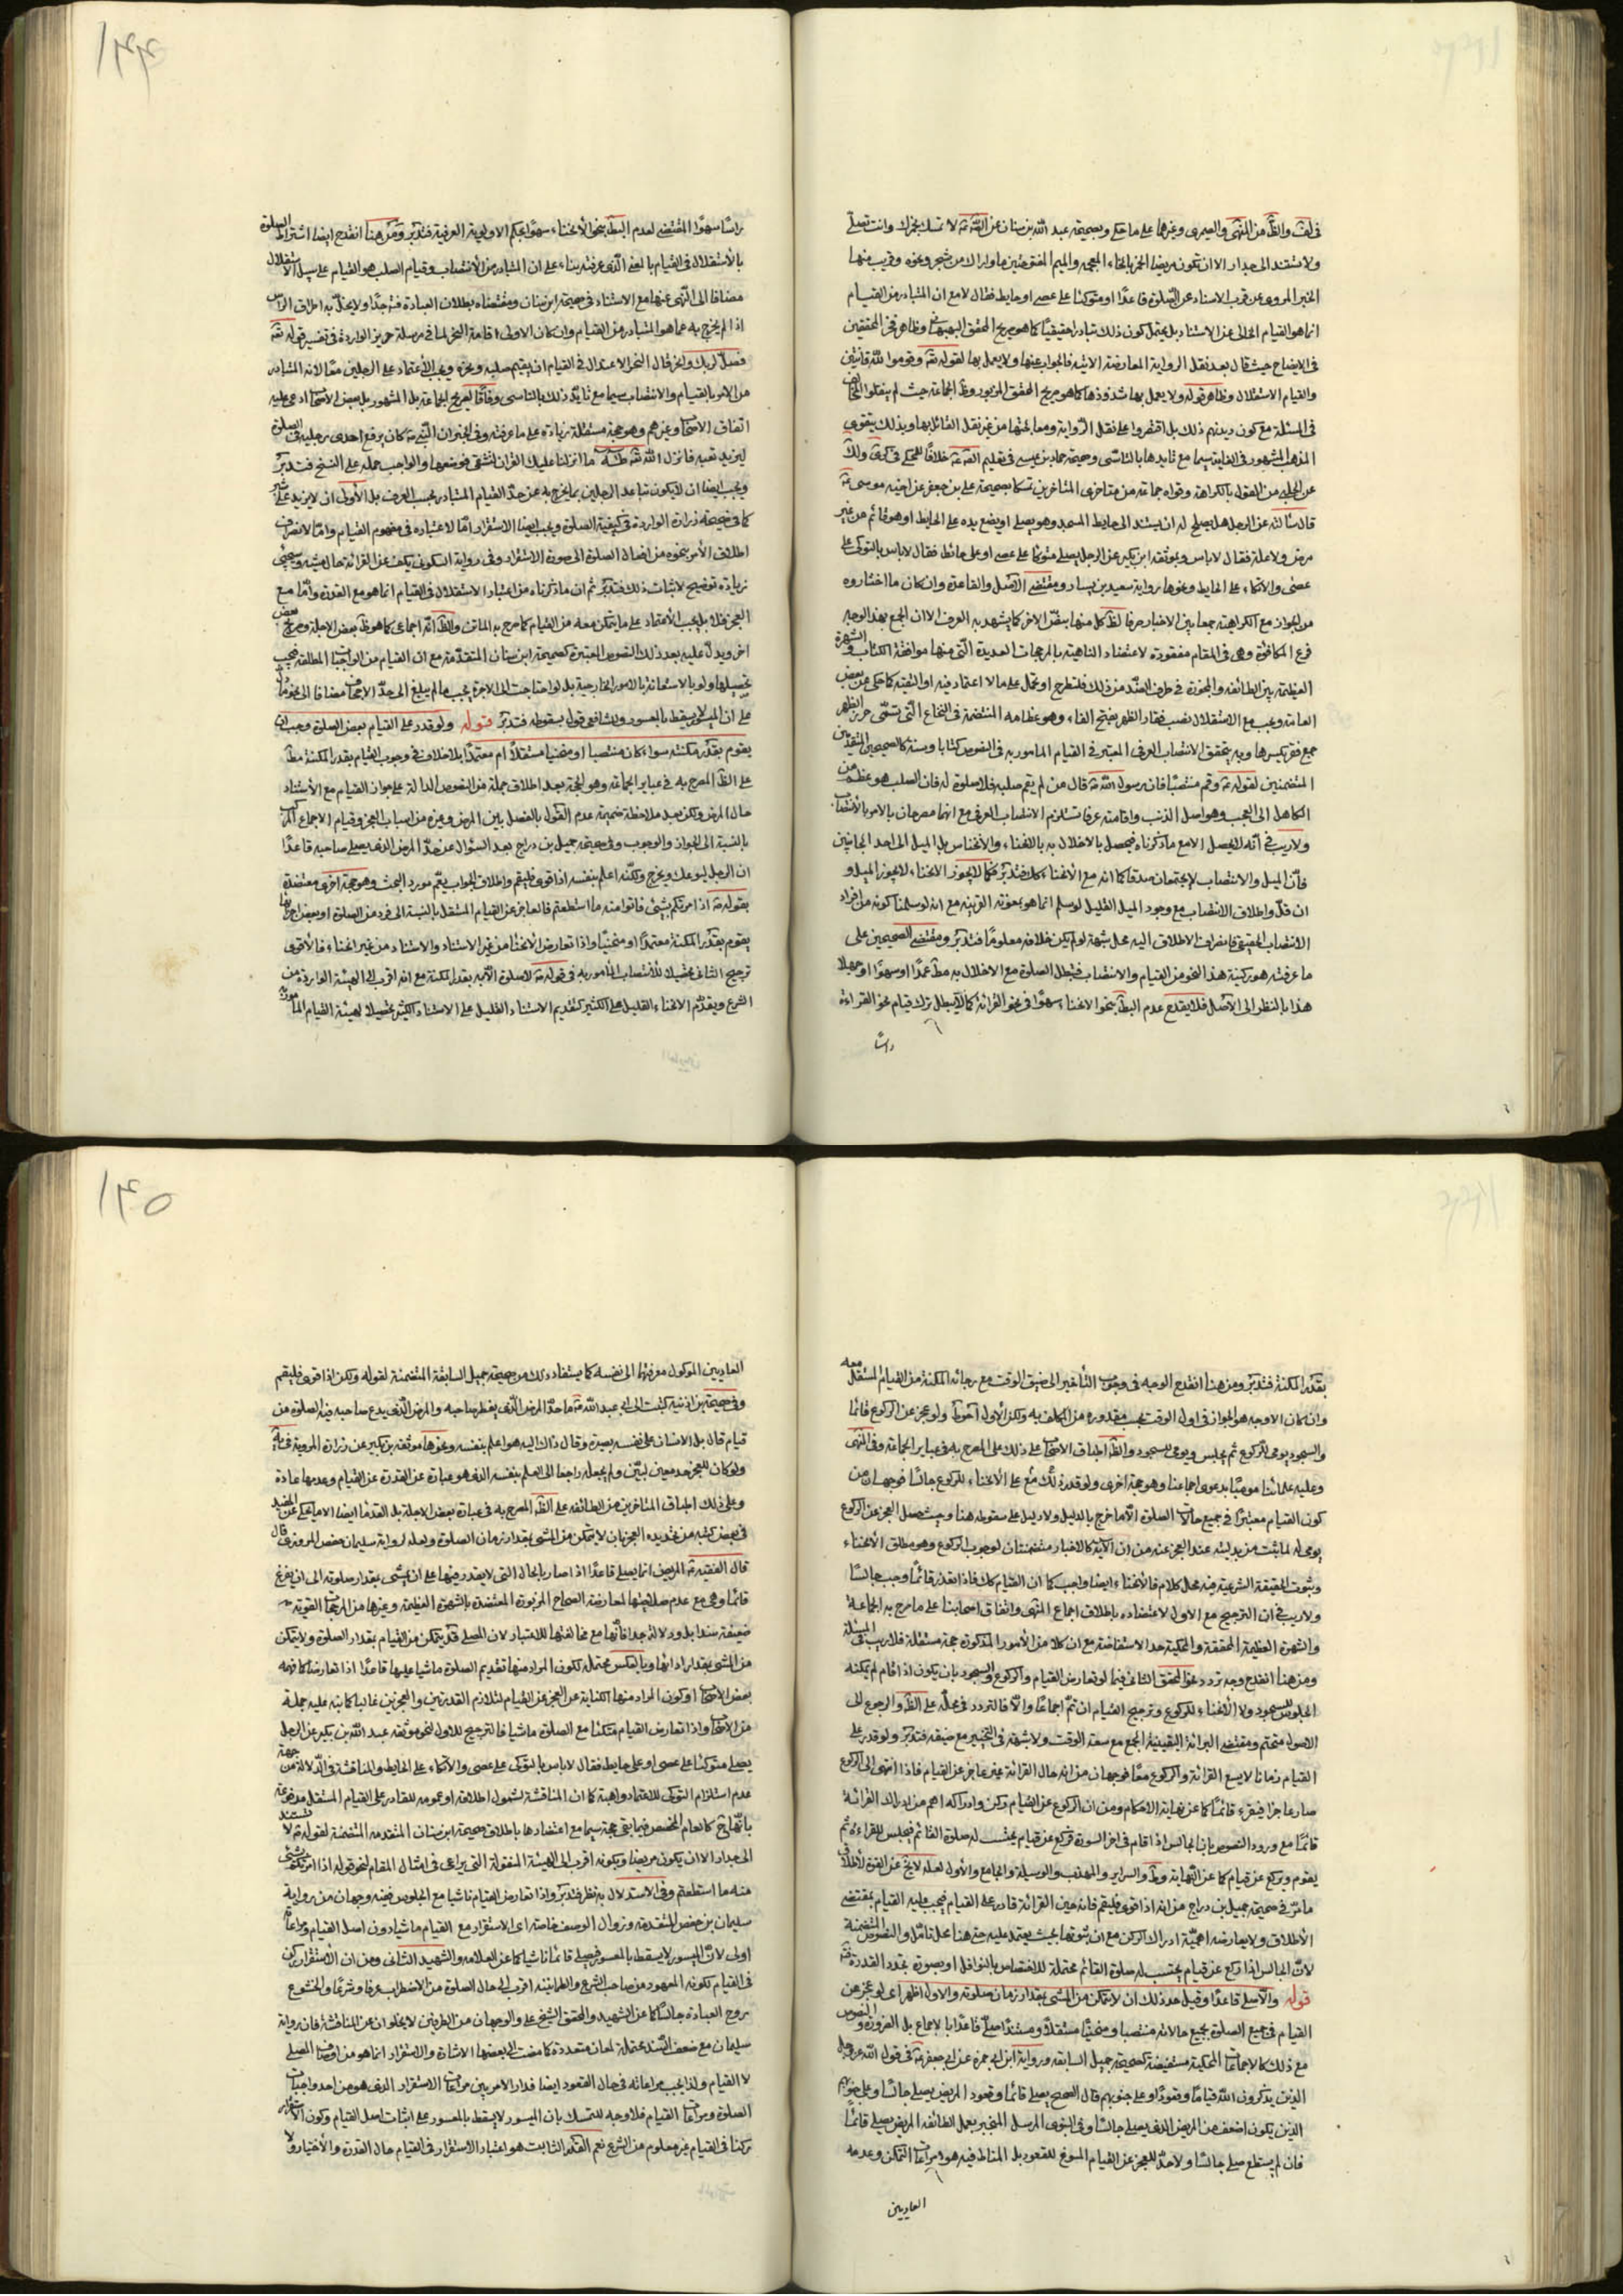 ١٤٤
ولا تستند الى جدار الا ان تكون مريضا
الخبر المروى عن قرب الاسناد عن الصلوة قاعدًا او متوكئا على عصى او حايط فقال لا مع ان المتبادر من القيام
انما هو القيام الخالى عن الاستناد بل يحتمل كون ذلك تبادرا حقيقيًا كما هو صريح المحقق
فى الايضاح حيث قال بعد نقل الرواية المعارضة الاتيه فالجواب عنها ولا يعمل بها لقوله تعه وقوموا لله قانتين
والقيام الاستقلال وظاهر قوله ولا يعمل بها شذوذها كما هو صريح المحقق المزبور
فى المسئلة مع كون ديدنهم ذلك بل اقتصروا على نقل الرواية
المذهب المشهور فى الغاية سيما مع تايدها بالتاسى وصحيحة حماد بن عيسى
عن الحلبى من القول بالكراهة وقواه جماعة من متاخرى المتاخرين تمسكا بصحيحة على بن جعفر عن اخيه موسى
قال سالته عن الرجل هل يصلح له ان يستند الى حايط المسجد وهو يصلى او يضع يده على الحايط وهو قائم من غير
مرض ولا علة فقال لا باس وبموثقة ابن بكير عن الرجل يصلى متوكئا على عصى او على حائط فقال لا باس بالتوكى على
عصى والاتكاء على الحايط ونحوها رواية سعيد بن يسار ومقتضى الاصل والقاعدة وان كان ما اختاروه
من الجواز مع الكراهة جمعا بين الاخبار
فرع المكافئة وهى فى المقام مفقودة لاعتضاد الناهية بالمرجحات العديدة التى منها موافقة الكتاب والشهرة
العظيمة بين الطائفه
العامة ويجب مع الاستقلال نصب فقار الظهر بفتح الفاء وهو عظامه المنتضمة فى النخاع التى تسمى خرز الظهر
المتضمنين لقوله وقم منتصبًا فان رسول الله قال من لم يقم صلبه فلا صلوة له فان الصلب هو عظم من
الكاهل الى العجب وهو اصل الذنب واقامته عرفا تستلزم الانتصاب العرفى مع انهما مصرحان بالامر بالانتصاب
ولا ريب فى أنه لا يحصل الا مع ما ذكرناه فيحصل بالاخلال به بالانحناء والانخناس بل الميل الى احد الجانبين
فان الميل والانتصاب لا يجتمعان صدقا كما انه مع الانحناء كذلك فتدبر فكما لا يجوز الانحناء لا يجوز الميل و
ان قل واطلاق الانتصاب مع وجود الميل القليل لو سلم انما هو بمعونة القرينه مع انه لو سلمنا كونه من افراد
الانتصاب الحقيقى فانصراف الاطلاق اليه محل شبهة لو لم يكن خلافه معلومًا فتدبر ومقتضى الصحيحين على
ما عرفته هو ركنية هذا النحو من القيام والانتصاب فتبطل الصلوة مع الاخلال به مط عمدًا او سهوًا او جهلا
هذا بالنظر الى الاصل فلا يقدح عدم البط بنحو الانحناء سهوًا فى نحو القرائة كما لا تبطل بترك قيام نحو القراءة
راسًا
راسًا سهوًا المقتضى لعدم البط بنحو الانحناء سهوًا بحكم الاولوية العرفية فتدبر ومن هنا انقدح ايضا اشتراط الصلوة
بالاستقلال فى القيام بالمعنى الذى عرفته بناء على ان المتبادر من الانتصاب وقيام الصلب هو القيام على سبيل الاستقلال
مضافا الى النهى عنها مع الاستناد فى صحيحة ابن سنان ومقتضاه بطلان العبادة
اذا لم يخرج به عما هو المتبادر من القيام وان كان الاولى اقامة النحر لما فى مرسلة حريز الواردة فى تفسير قوله تعه
فصل لربك وانحر قال النحر الاعتدال فى القيام ان يقيم صلبه ونحره ويجب الاعتماد على الرجلين معًا لانه المتبادر
من الامر بالقيام والانتصاب سيما مع تايد ذلك بالتاسى وفاقًا لصريح جماعة بل المشهور
اتفاق الاصحاب وغيرهم وهو حجة مستقلة زيادة على ما عرفته وفى الخبر ان النبى كان يرفع احدى رجليه فى الصلوة
ليزيد تعبه فانزل الله تعه طه ما انزلنا عليك القران لتشقى فوضعها والواجب حمله على النسخ فتدبر
ويجب ايضا ان لا يكون تباعد الرجلين بما يخرج به عن حد القيام المتبادر بحسب العرف بل الاولى ان لا يزيد على شبر
كما فى صحيحة زرارة الواردة فى كيفية الصلوة ويجب ايضا الاستقرار اما لاعتباره فى مفهوم القيام واما لانصراف
اطلاق الامر بنحوه من افعال الصلوة الى صورة الاستقرار وفى رواية السكونى يكف عن القرائة حال مشيه وسيجىء
زيادة توضيح لاثبات ذلك فتدبر ثم ان ما ذكرناه من اعتبار الاستقلال فى القيام انما هو مع القدرة واما مع
العجز فلا بل يجب الاعتماد على ما يتمكن معه من القيام كما صرح به الماتن والظ انه اجماعى كما هو ظ بعض الاجلة وصريح بعض
اخر ويدل عليه بعد ذلك النصوص المعتبرة كصحيحة ابن سنان المتقدمة مع ان القيام من الواجبات المطلقة فيجب
تحصيلها ولو بالاستعانة بالامور الخارجية بل لو احتاجت الى الاجرة يجب ما لم يبلغ الى حد الاجحاف
على ان الميسور لا يسقط بالمعسور وللشافعى قول بسقوطه فتدبر قوله ولو قدر على القيام بعض الصلوة وجب ان
يقوم بقدر مكنته سواء كان منتصبا او منحنيا مستقلًا ام معتمدًا بلا خلاف فى وجوب القيام بقدر المكنة مط
على الظ المصرح به فى عباير الجماعة وهو الحجة بعد اطلاق جملة من النصوص الدالة على جواز القيام مع الاستناد
حال المرض ولكن بعد ملاحظة ضميمة عدم القول بالفصل بين المرض وغيره من اسباب العجز وقيام الاجماع المركب
بالنسبة الى الجواز والوجوب وفى صحيحة جميل بن دراج بعد السؤال عن حد المرض الذى يصلى صاحبه قاعدًا
ان الرجل ليوعك ويحرج ولكنه اعلم بنفسه اذا قوى فليقم واطلاق الجواب يتم مورد البحث وهو حجة اخرى معتضدة
بقوله اذا امرتكم بشىء فاتوا منه ما استطعتم فالعاجز عن القيام المستقل بالنسبة الى فرد من الصلوة او بعض اجزائها
يقوم بقدر المكنة معتمدًا او منحنيًا واذا تعارض الانحناء من غير الاستناد والاستناد من غير انحناء فالاقوى
ترجيح الثانى تحصيلا للانتصاب المامور به
الشرع ويقدم الانحناء القليل على الكثير كتقديم الاستناد القليل على الاستناد الكثير تحصيلا لهيئة القيام
١٤٥
بقدر المكنة فتدبر ومن هنا انقدح الوجه فى وجوب التأخير الى ضيق الوقت مع رجائه المكنة من القيام المستقل معه
وان كان الاوجه هو الجواز فى اول الوقت بحسب مقدوره من المكلف به ولكن الاول احوط ولو عجز عن الركوع قائما
والسجود يومى للركوع ثم يجلس ويومى للسجود والظ اطباق الاصحاب على ذلك على المصرح به فى عباير الجماعة وفى المنتهى
وعليه علمائنا مومئًا بدعوى اجماعنا وهو حجة اخرى
كون القيام معتبرًا فى جميع حالات الصلوة الا ما خرج بالدليل ولا دليل على سقوطه هنا وحيث حصل العجز عن الركوع
يومى له لما ثبت من بدليته عند العجز عنه
وثبوت الحقيقة الشرعية فيه محل كلام فالانحناء ايضا واجب كما ان القيام كذلك
ولا ريب فى ان الترجيح مع الاول لاعتضاده باطلاق اجماع المنتهى واتفاق اصحابنا على ما صرح به الجماعة
والشهرة العظيمة المحققة والمحكية حد الاستفاضة مع ان كلا من الامور المذكورة حجة مستقلة فلا ريب فى المسئلة
ومن هنا انقدح وجه تردد نحو المحقق الثانى فيما لو تعارض القيام والركوع والسجود بان يكون اذا قام لم يمكنه
الجلوس للسجود ولا الانحناء للركوع وترجيح القيام ان تم اجماعًا والا فالتردد فى محله على الظ والرجوع الى
الاصول متحتم ومقتضى البرائة اليقينية الجمع مع سعة الوقت ولا شبهة فى التخيير مع ضيقه فتدبر ولو قدر على
القيام زمانا لا يسع القرائة والركوع معًا فوجهان من انه حال القرائة غير عاجز عن القيام فاذا انتهى الى الركوع
صار عاجزا فيقرء قائمًا كما عن نهاية الاحكام ومن ان الركوع عن القيام ركن وادراكه اهم من ادراك القرائة
قائمًا مع ورود النصوص بان الجالس اذا قام فى اخر السورة فركع عن قيام يحتسب له صلوة القائم فيجلس للقراءة ثم
يقوم ويركع عن قيام كما عن النهاية وط والسراير والمهذب والوسيلة والجامع والاول لعله لا يخ عن القوة
ما مر فى صحيحة جميل بن دراج من انه اذا قوى فليقم فانه حين القرائة قادر على القيام فيجب عليه القيام بمقتضى
الاطلاق ولا يعارضه اهمية ادراك الركن مع ان ثبوتها بحيث يعتمد عليه حتى هنا محل تامل والنصوص المتضمنة
لان الجالس اذا ركع عن قيام يحتسب له صلوة القائم محتملة للاختصاص بالنوافل او بصورة تجدد القدرة
قوله والا صلى قاعدًا وقيل حد ذلك ان لا يتمكن من المشى بمقدار زمان صلوته والاول اظهر اى لو عجز عن
القيام فى جميع الصلوة بجميع حالاته منتصبا ومنحنيًا مستقلًا ومستندًا صلى قاعدًا بالاجماع بل الضرورة والنصوص
مع ذلك كالاجماعات المحكية مستفيضة كصحيحة جميل السابقة ورواية ابن ابى حمزة عن ابى جعفر فى قول الله عز وجل
الذين يذكرون الله قيامًا وقعودًا وعلى جنوبهم قال الصحيح يصلى قائما وقعود المريض يصلى جالسًا وعلى جنوبهم
الذين يكون اضعف من المريض الذى يصلى جالسًا وفى النبوى المرسل المنجبر بعمل الطائفه المريض يصلى قائمًا
فان لم يستطع صلى جالسًا ولا حد للعجز عن القيام المسوغ للقعود بل المناط فيه هو مراعات التمكن وعدمه
العاديين
العاديين الموكول معرفتهما الى نفسه كما يستفاد ذلك من صحيحة جميل السابقة المتضمنة لقوله ولكن اذا قوى فليقم
وفى صحيحة بن اذنية كتبت الى ابى عبد الله ما حد المرض الذى يفطر صاحبه والمرض الذى يدع صاحبه فيه الصلوة من
قيام قال بل الانسان على نفسه بصيرة وقال ذاك اليه هو اعلم بنفسه ونحوها موثقة بن بكير عن زرارة المروية
ولو كان للعجز حد معين لبين ولم يجعله راجعا الى العلم بنفسه الذى هو عبارة عن القدرة عن القيام وعدمها عادة
وعلى ذلك اطباق المتاخرين من الطائفه على الظ المصرح به فى عبارة بعض الاجلة بل القدما ايضا الا ما يحكى عن المفيد
فى بعض كتبه من تحديده العجز بان لا يتمكن من المشى بمقدار زمان الصلوة ولعله لرواية سليمان بن حفص المروزى قال
قال الفقيه المريض انما يصلى قاعدًا اذا صار بالحال التى لا يقدر فيها على ان يمشى بمقدار صلوته الى ان يفرغ
قائما وهى مع عدم صلاحيتها لمعارضة الصحاح المزبورة المعتضدة بالشهرة العظيمة وغيرها من المرجحات القوية
ضعيفة سندا بل ودلالة جدا فانها مع مخالفتها للاعتبار لان المصلى قد يتمكن من القيام بمقدار الصلوة ولا يتمكن
من المشى بمقدار ادائها وبالعكس محتملة لكون المراد منها تقديم الصلوة ماشيا عليها قاعدًا اذا تعارضا كما فهمه
بعض الاصحاب او كون المراد منها الكناية عن العجز عن القيام لتلازم القدرتين والعجزين غالبا كما نبه عليه جملة
من الاصحاب واذا تعارض القيام متكئا مع الصلوة ماشيا فالترجيح للاول لنحو موثقة عبد الله بن بكير عن الرجل
يصلى متوكئا على عصى او على حايط فقال لا باس بالتوكى على عصى والاتكاء على الحايط والمناقشة فى الدلالة من جهة
عدم استلزام التوكى للاعتماد واهية كما ان المناقشة لشمول اطلاقه او عمومه للقادر على القيام المستقل مدفوعة
بانها ح كالعام المخصص فيما بقى حجة سيما مع اعتضادها باطلاق صحيحة ابن سنان المتقدمه المتضمنة لقوله لا تستند
الى جدار الا ان يكون مريضا وبكونه اقرب الى الهيئة المنقولة التى يراعى فى امثال المقام لنحو قوله اذا امرتكم بشىء
منه ما استطعتم وفى الاستدلال به نظر فتدبر واذا تعارض القيام ماشيا مع الجلوس ففيه وجهان من رواية
سليمان بن حفص المتقدمة وزوال الوصف خاصة اى الاستقرار مع القيام ماشيا دون اصل القيام ومراعاته
اولى لان الميسور لا يسقط بالمعسور فيصلى قائما ماشيا كما عن العلامه والشهيد الثانى ومن ان الاستقرار ركن
فى القيام لكونه المعهود من صاحب الشرع والطمانينه اقرب الى حال الصلوة من الاضطراب عرفا وشرعًا والخشوع
روح العبادة جالسًا كما عن الشهيد والمحقق الشيخ على والوجهان من الطرفين لا يخلوان عن المناقشة فان رواية
سليمان مع ضعف السند محتملة لمعان متعددة كما مضت الى بعضها الاشارة والاستقرار انما هو من اوصاف المصلى
لا القيام ولذا يجب مراعاته فى حال القعود ايضا فدار الامر بين مراعات الاستقرار الذى هو من احد واجبات
الصلوة ومراعات القيام فلا وجه للتمسك بان الميسور لا يسقط بالمعسور على اثبات اصل القيام وكون الاستقرار
ركنا فى القيام غير معلوم من الشرع نعم القدر الثابت هو اعتبار الاستقرار فى القيام حال القدرة والاختيار ولا